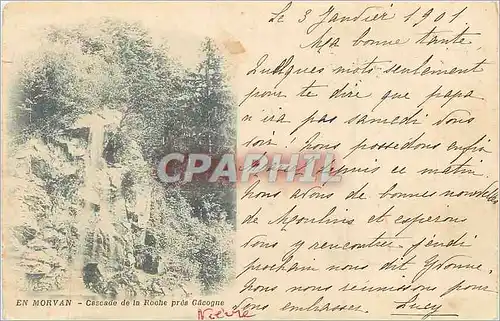 Le 3 Janvier 1901
Ma bonne tante
Quelques mots seulement
pour te dire que papa
n'ira pas samedi vous
voir. Nous possédons enfin
depuis ce matin.
Nous avons de bonnes nouvelles
de Moulins et espérons
vous y rencontrer jeudi
prochain nous dit Yvonne.
nous nous réunissons pour
vous embrasser. Lucy
CPAPHIL
EN MORVAN - Cascade de la Roche près Gâcogne
Nièvre